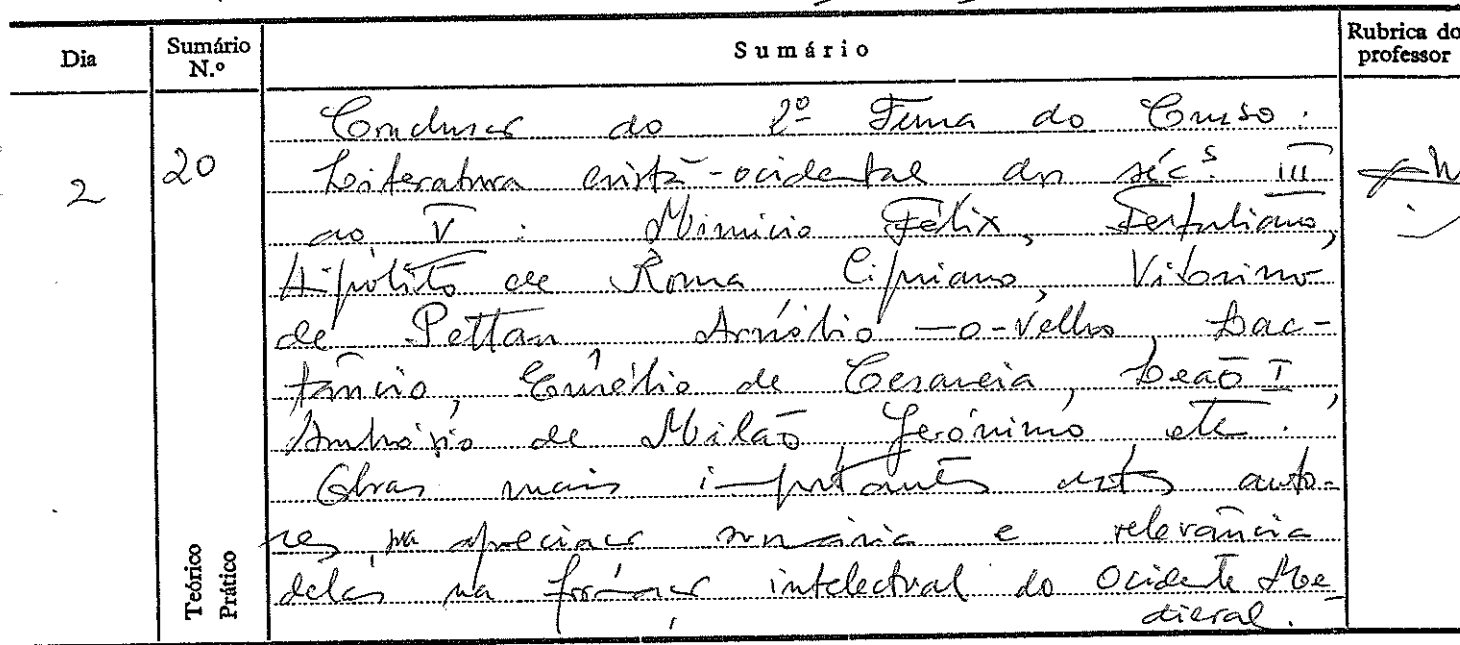 Dia
Sumário N.º
Sumário
Rubrica do professor
2
20
Conclusão do 2º Tema do Curso.
Literatura cristã-ocidental dos séc.s III
ao V : Minúcio Félix, Tertuliano,
Hipólito de Roma Cipriano, Vitorino
de Pettau, Arnóbio-o-Velho, Lac-
tâncio, de Cesareia, Leão I,
Ambrósio de Milão, Jerónimo, etc.
Obras mais importantes destes auto-
res, sua apreciação sumária e relevância
delas na formação intelectual do Ocidente Me
dieval.
Teórico
Prático